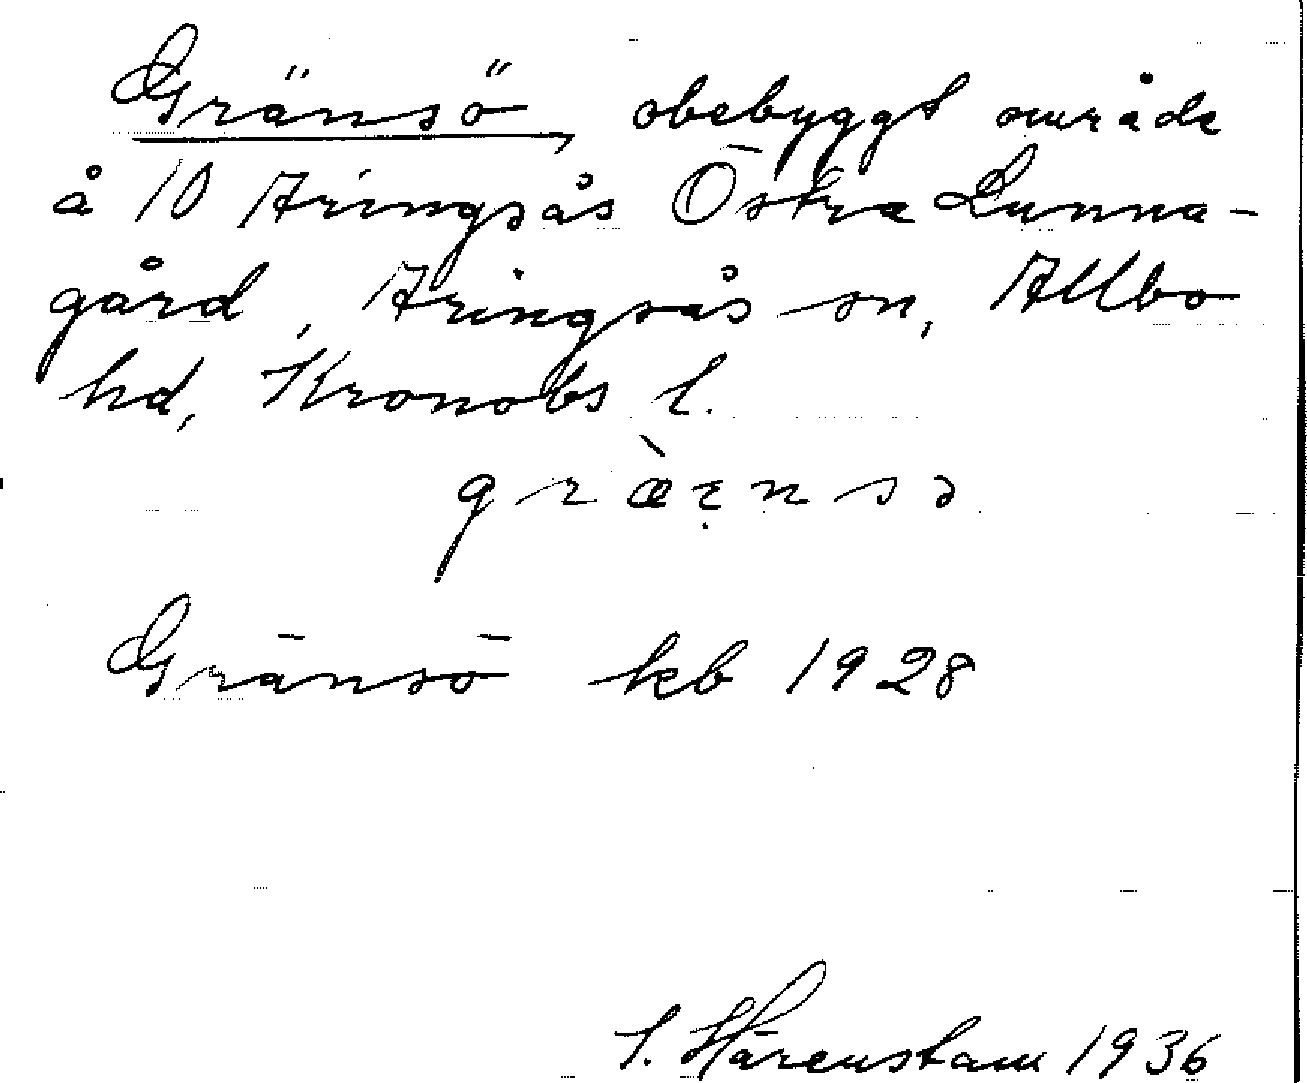 Gränsö, obebyggt område
å 10 Aringsås Östra Lunna-
gård, Aringsås sn, Allbo
hd, Kronobs l.
Gränsö kb 1928
Härenstam 1936